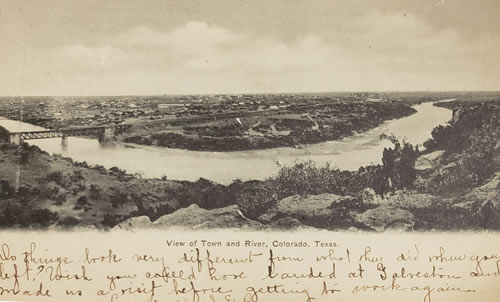 View of Town and River, Colorado, Texas.
Do things look very different from what they did when you
left? Wish you could have landed at Galveston and
made us a visit before getting to work again.